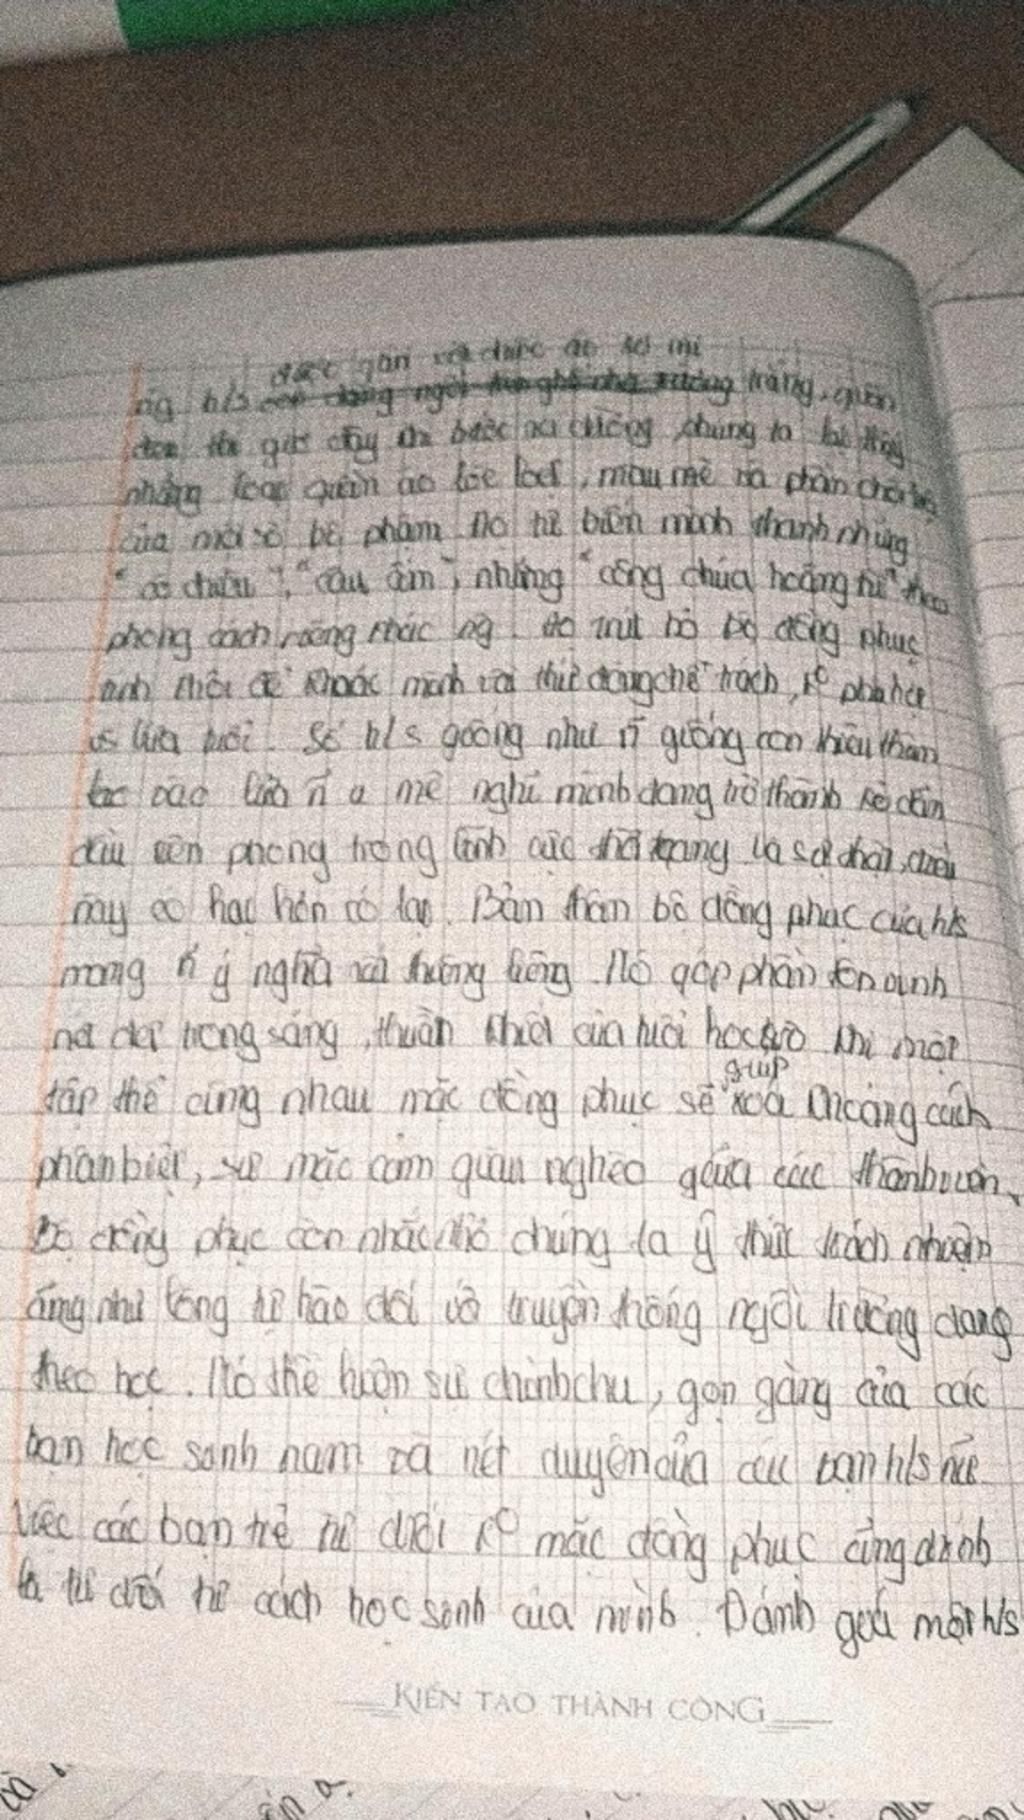 được gắn với chiếc áo sơ mi
ng h/s trắng, quần
đen thì giờ đây chúng ta lại thấy
những loại quần áo lòe loẹt, màu mè và phản
của một số bộ phậm. Họ tự biến mình thành những
"cô chiêu", "cậu ấm", những "công chúa hoàng tử" theo
phong cách riêng khác ng. Họ trút bỏ bộ đồng phục
để khoác mình thứ chê trách, k° phù hợp
lứa tuổi. Số h/s giống như n~ giống con thiêu thân
lao vào lửa mê nghĩ mình đang trở thành kẻ dẫn
đầu tiên phong trong lĩnh vực thời trang là sợ thật, điều
này có hại hơn có lợi. Bản thân bộ đồng phục của h/s
mang n~ ý nghĩa rất thiêng liêng. Nó góp phần tôn vinh
nét đẹp trong sáng, thuần khiết của tuổi học trò khi một
giúp
tập thể cùng nhau mặc đồng phục sẽ xoá khoảng cách
phân biệt, sự mặc cảm giàu nghèo giữa các thành viên.
Bộ đồng phục còn nhắc nhở chúng ta ý thức trách nhiệm
cũng như lòng tự hào đối với truyền thống ngôi trường đang
theo học. Nó thể hiện sự chỉnh chu, gọn gàng của các
bạn học sinh nam và nét duyên của các bạn h/s nữ.
Việc các bạn trẻ từ chối k° mặc đồng phục cũng chính
là từ chối tư cách học sinh của mình. Đánh giá một h/s
KIẾN TẠO THÀNH CÔNG